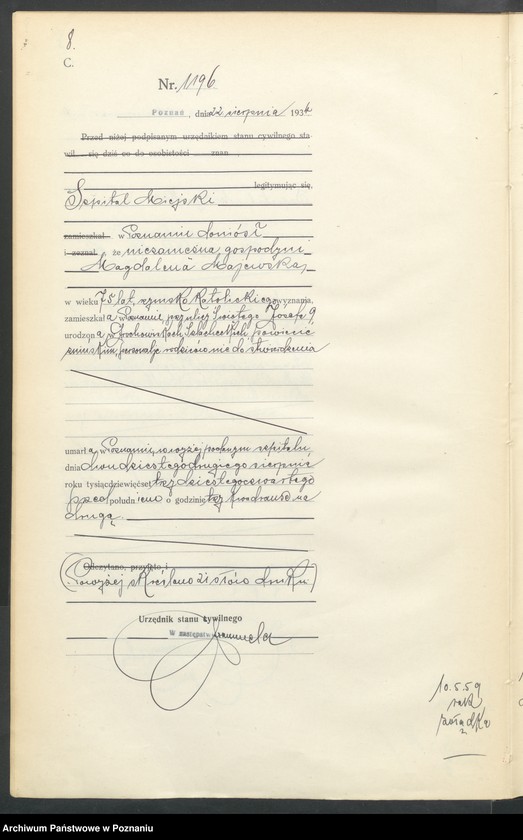 8.
C.
Nr. 1196
Poznań, dnia 22 sierpnia 1934
Przed niżej podpisanym urzędnikiem stanu cywilnego sta
wił się dziś co do osobistości znan
legitymując się
Szpital Miejski
zamieszkał w Poznaniu doniósł
i zeznał, że niezamężna gospodyni
Magdalena Majewska,
w wieku 75 lat, rzymsko katolickiego wyznania,
zamieszkała w Poznaniu, przy ulicy Świętego Józefa 9
urodzona w Grochowiskach Szlacheckich, powiecie
żnińskim, personalje rodziców nie do stwierdzenia
umarła w Poznaniu, w wyżej podanym szpitalu
dnia dwudziestegodrugiego sierpnia
roku tysiącdziewięćset trzydziestegoczwartego
przed południem o godzinie trzy kwadranse na
drugą.
Odczytano, przyjęto i
(Powyżej skreślono 21 słów druku)
Urzędnik stanu cywilnego
W zastępstwie
10.5.59